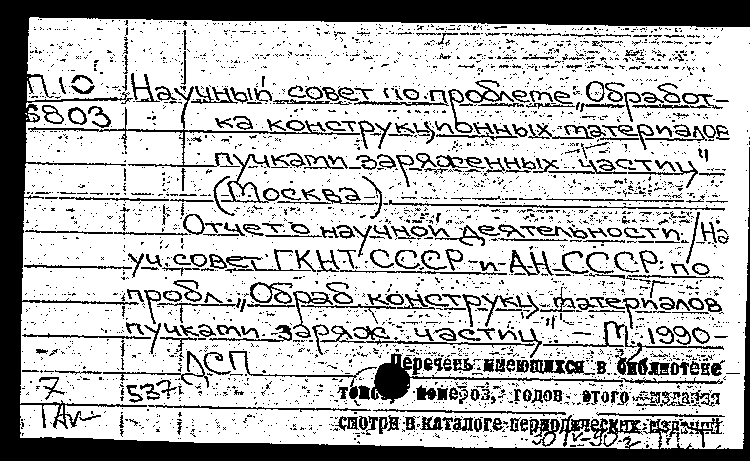 П10 Научный совет по проблеме „Обработ-
6803 ка конструкционных материалов
пучками заряженных частиц"
(Москва).
Отчет о научной деятельности / На
уч. совет ГКНТ СССР и АН СССР по
пробл. „Обраб конструкц материалов
пучками заряж. частиц". – М, 1990-
ДСП.
Перечень имеющихся в библиотеке
7 537 томов, номеров, годов этого издания
смотри в каталоге периодических изданий